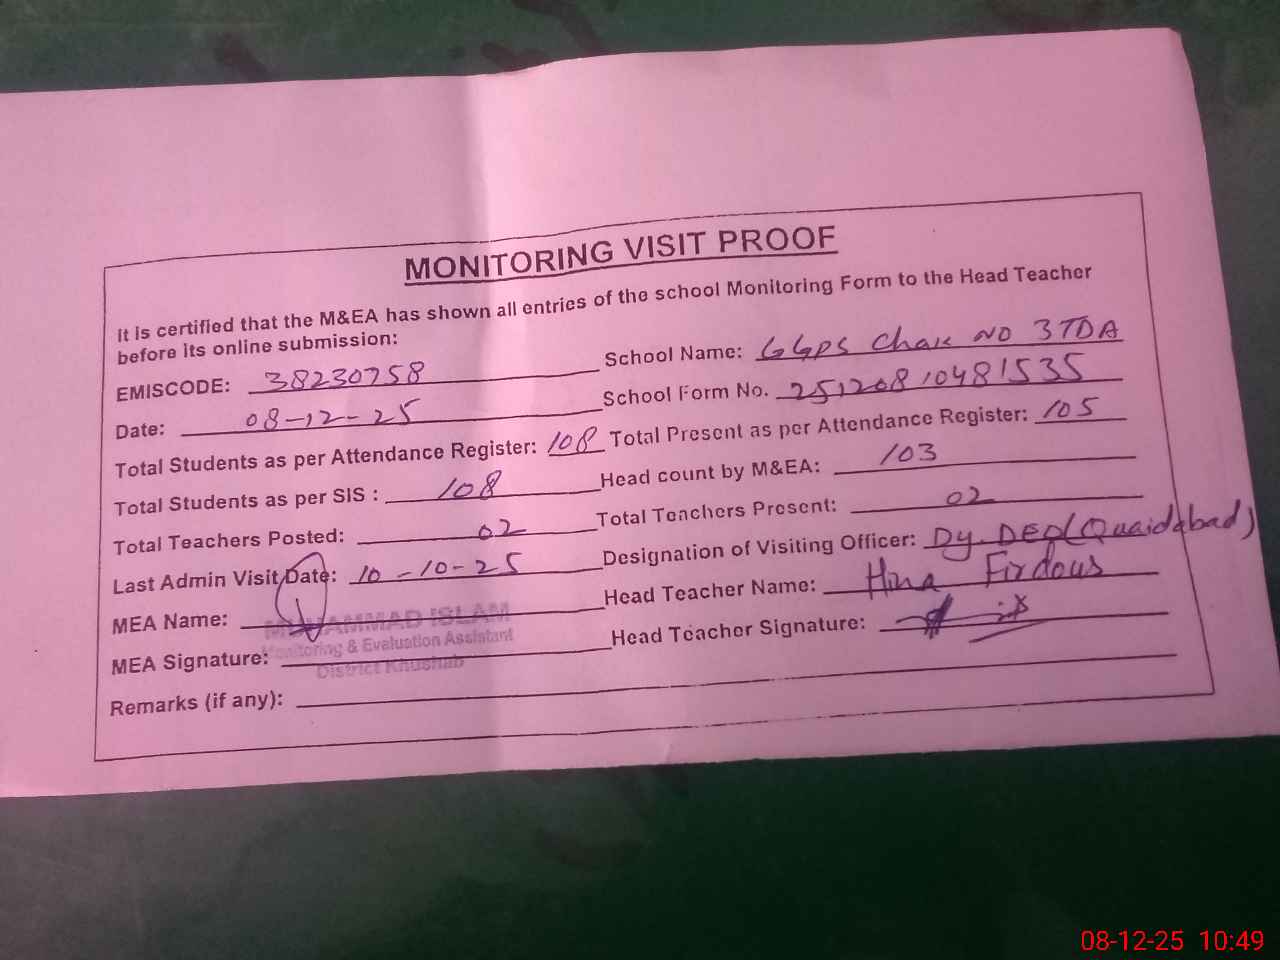 MONITORING VISIT PROOF
It is certified that the M&EA has shown all entries of the school Monitoring Form to the Head Teacher
before its online submission:
EMISCODE: 38230758 School Name: GGPS Chak NO 3TDA
Date: 08-12-25 School Form No. 25120810481535
Total Students as per Attendance Register: 108 Total Present as per Attendance Register: 105
Total Students as per SIS : 108 Head count by M&EA: 103
Total Teachers Posted: 02 Total Teachers Present: 02
Last Admin Visit Date: 10-10-25 Designation of Visiting Officer: Dy. DEO (Quaidabad)
MEA Name: MUHAMMAD ISLAM Head Teacher Name: Hina Firdous
Monitoring & Evaluation Assistant
MEA Signature: Head Teacher Signature:
District Khushab
Remarks (if any):
08-12-25 10:49